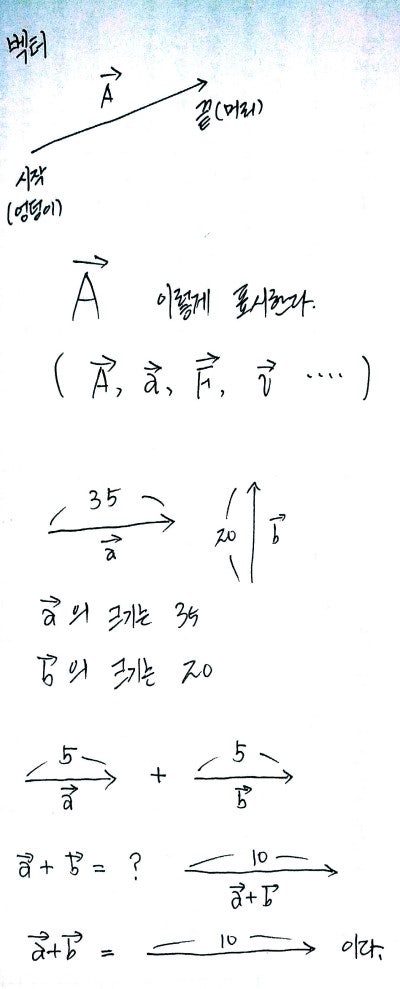 벡터
A⃗
끝(머리)
시작
(엉덩이)
A⃗ 이렇게 표시한다.
( A⃗, a⃗, F⃗, v⃗ ···· )
35
a⃗
20 b⃗
a⃗ 의 크기는 35
b⃗ 의 크기는 20
5 5
+
a⃗ b⃗
a⃗ + b⃗ = ? 10
a⃗+b⃗
a⃗+b⃗ = 10 이다.